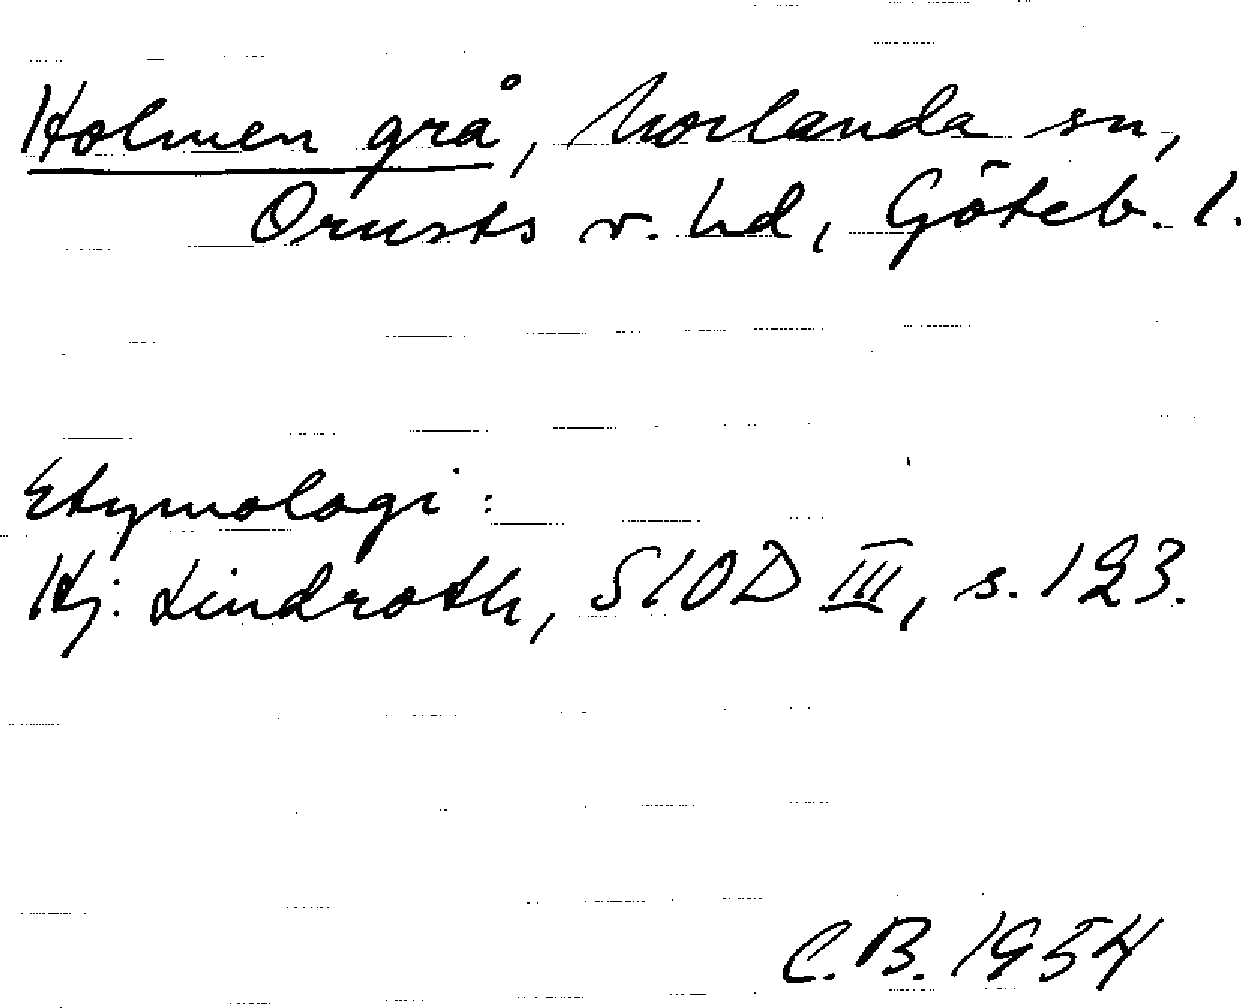 Holmen grå, Morlanda sn,
Orusts v. hd, Göteb. l.
Etymologi:
Hj. Lindroth, SIOD III, s. 123.
C.B. 1954